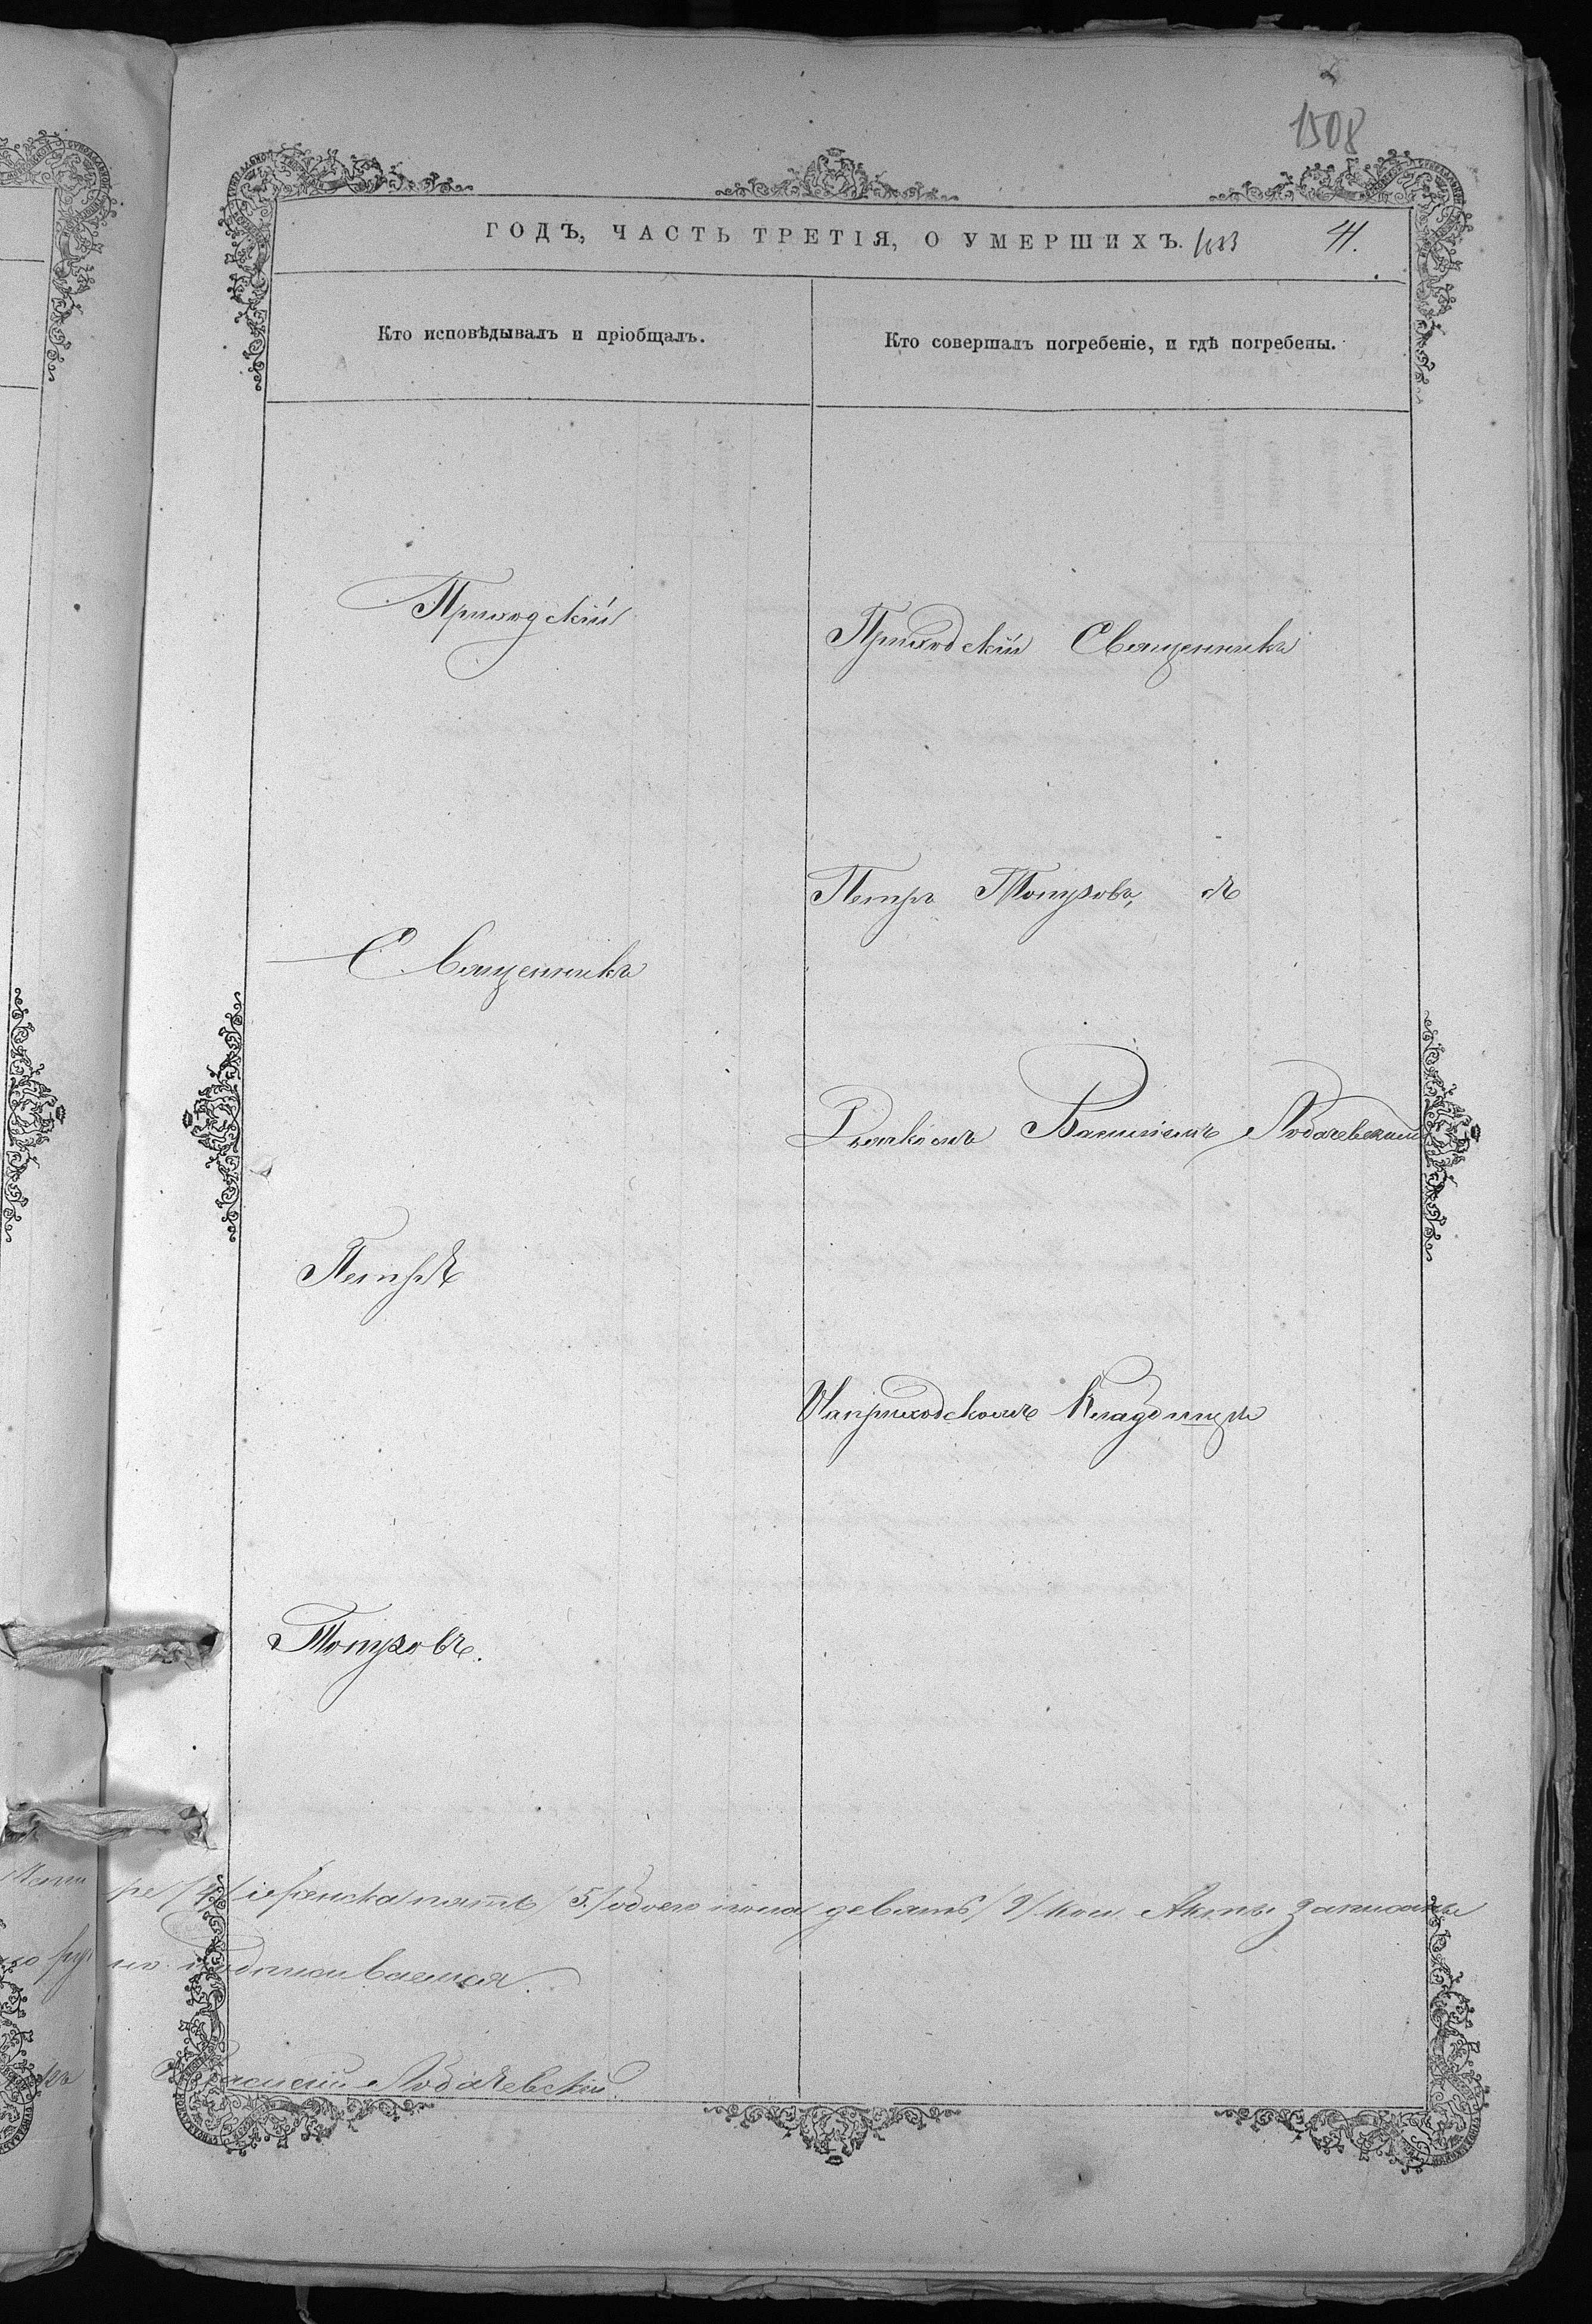 1508
ГОДЪ, ЧАСТЬ ТРЕТІЯ, О УМЕРШИХЪ. 1883 41.
Кто исповѣдывалъ и пріобщалъ.
Кто совершалъ погребеніе, и гдѣ погребены.
Приходскій
Священникъ
Петръ
Топузовъ.
Приходскій Священникъ
Петръ Топузовъ, съ
Дьячкомъ Василіемъ Лобачевскимъ
На приходскомъ Кладбищѣ
ре /4/ женска пять /5./ обоего пола девять /9/ кои Акты записаны
но подписываемся.
Василий Лобачевский.